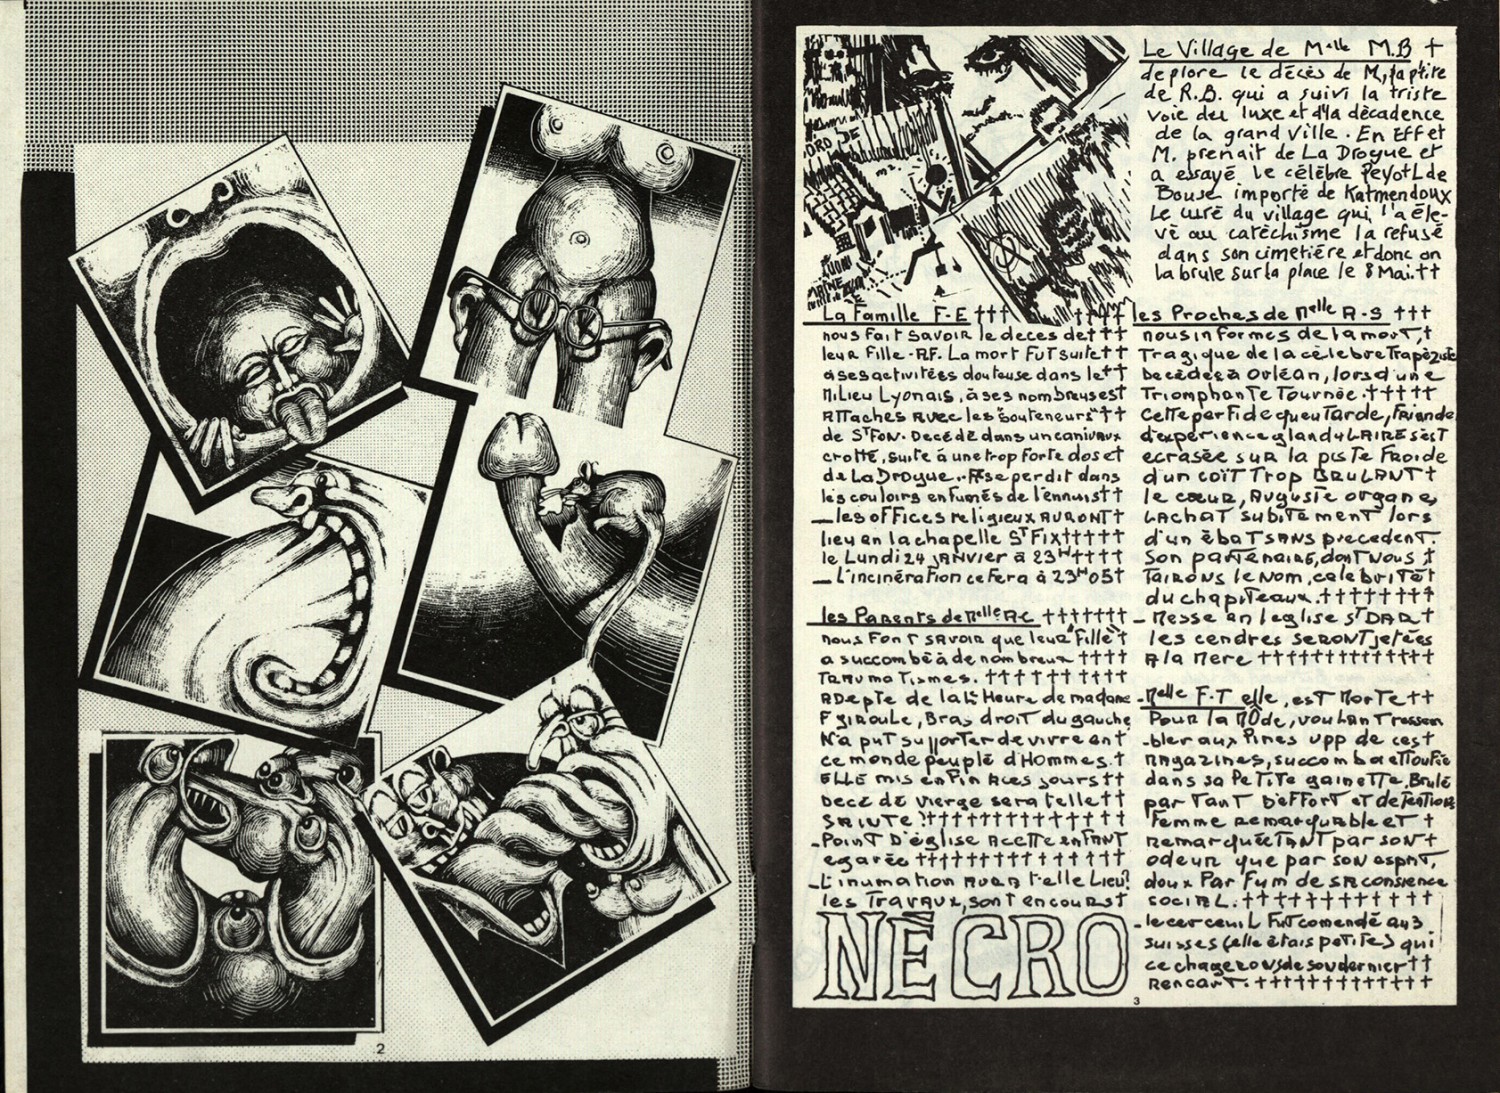 Le Village de Melle M.B †
deplore le décès de M, la ptite
de R.B. qui a suivi la triste
voie du luxe et d'la décadence
de la grand ville. En Effet
M. prenait de La Drogue et
a essayé le célèbre Peyotl de
Bouse importé de Katmendoux
Le curé du village qui l'a éle-
vé au catéchisme la refusé
dans son cimetière et donc on
la brule sur la place le 8 Mai.††
La Famille F-E †††
nous fait savoir le deces de†††
leur Fille-RF. La mort Fut suite††
à ses activitées douteuse dans le††
Milieu Lyonais, à ses nombreuses†
Attaches avec les "souteneurs"††
de St Fon. Décédé dans un caniveaux
crotté, suite à une trop forte dos et
de La Drogue.. se perdit dans
les couloirs enfumés de l'ennuis††
_ les offices religieux AURONT†
lieu en la chapelle St Fix†††††
le Lundi 24 JANVier à 23H††††
_ L'incinération ce Fera à 23H05†
les Parents de Melle AC †††††††
nous Font savoir que leur Fille†
a succombé à de nombreux ††††
Traumatismes. ††††††††
ADepte de la Heure de madame
F giroule, Bras droit du gauche
N'a put supporter de vivre en†
ce monde peuplé d'Hommes.†
ELLE mis en Fin à ces jours††
Decé dé vierge sera telle††
SAINTE ?†††††††††††††
_ Point D'église A cette enFANT
egarée ††††††††††††††
_ L'inumation AURA t'elle Lieu?
les Travaux, sont en cours†
NÉCRO
les Proches de Melle A-S †††
nous informes de la mort,†
Tragique de la célebre Trapéziste
Decédée à Orléan, lors d'une
Triomphante Tournée.†††††
Cette perfide queutarde, Friande
d'expérience glandulaire s'est
ecrasée sur la piste Froide
d'un coït Trop BRULANT†
le cœur, Auguste organe,
LAchat subitement lors
d'un ébat SANS precedent.
Son partenaire, dont Nous †
Tairons le Nom, celebrité†
du chapiteaux.††††††††
_ Messe en l'eglise St DAR†
les cendres seront jetées
A la Mere †††††††††††††
-Melle F-T elle, est Morte††
Pour la MOde, voulant ressem
-bler aux Pines upp de ces†
Magazines, succomba etoufée
dans sa Petite gainette. Brulé
par Tant D'effort et detentions
Femme remarquable et †
remarquée Tant par son †
odeur que par son esprit,
doux Parfum de sa consience
social.†††††††††††††
-le cerceuil Fut comendé au 3
suisses (elle étais petite) qui
ce de son dernier††
Rencart.†††††††††††††
2
3